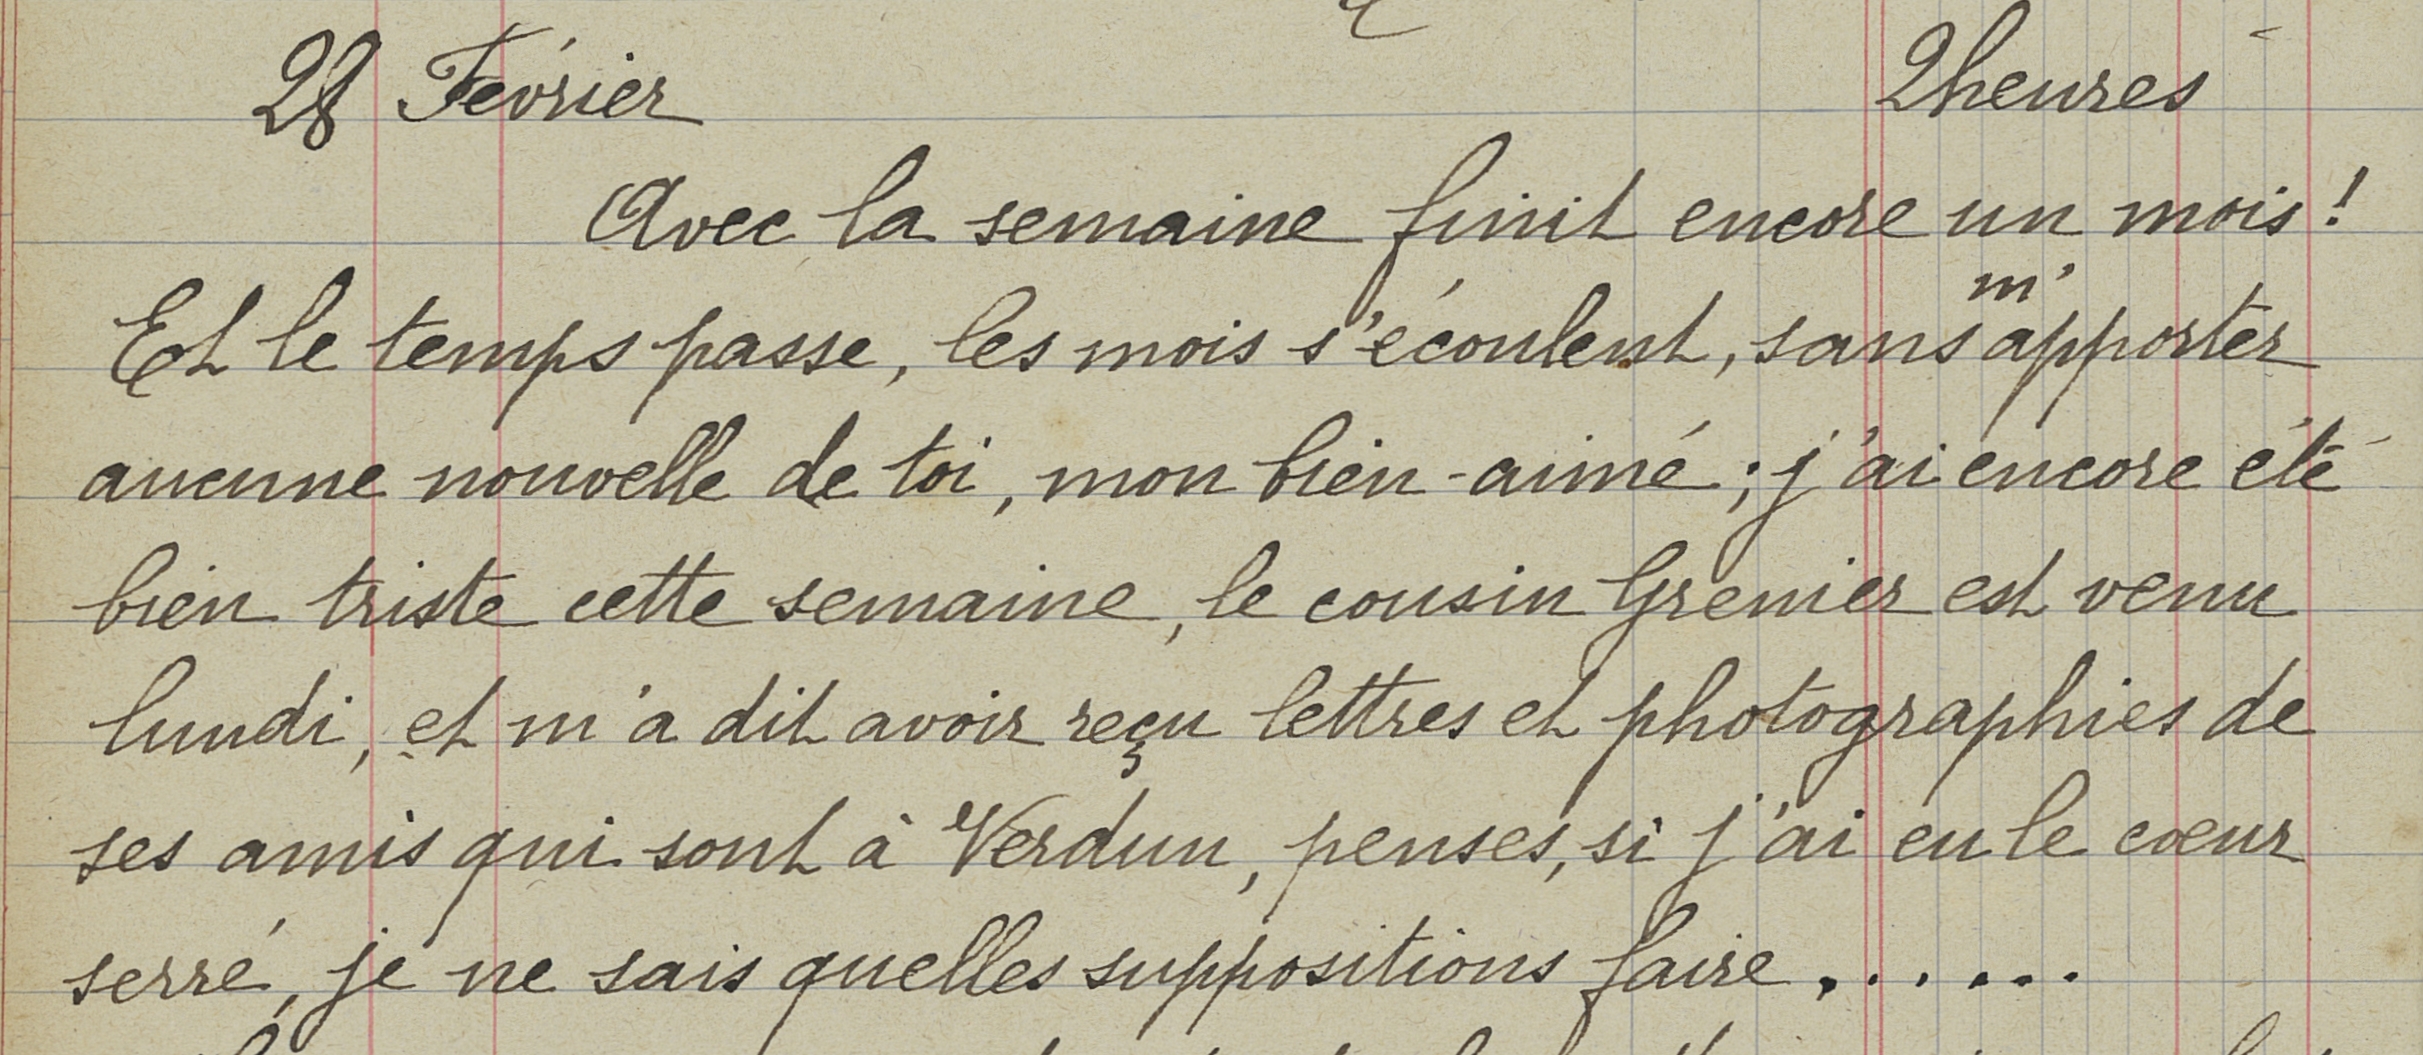 28 Février 2heures
Avec la semaine finit encore un mois !
Et le temps passe, les mois s'écoulent, sans m'apporter
aucune nouvelle de toi, mon bien-aimé ; j'ai encore été
bien triste cette semaine, le cousin Grenier est venu
lundi, et m'a dit avoir reçu lettres et photographies de
ses amis qui sont à Verdun, penses, si j'ai eu le cœur
serré, je ne sais quelles suppositions faire . . . . . .